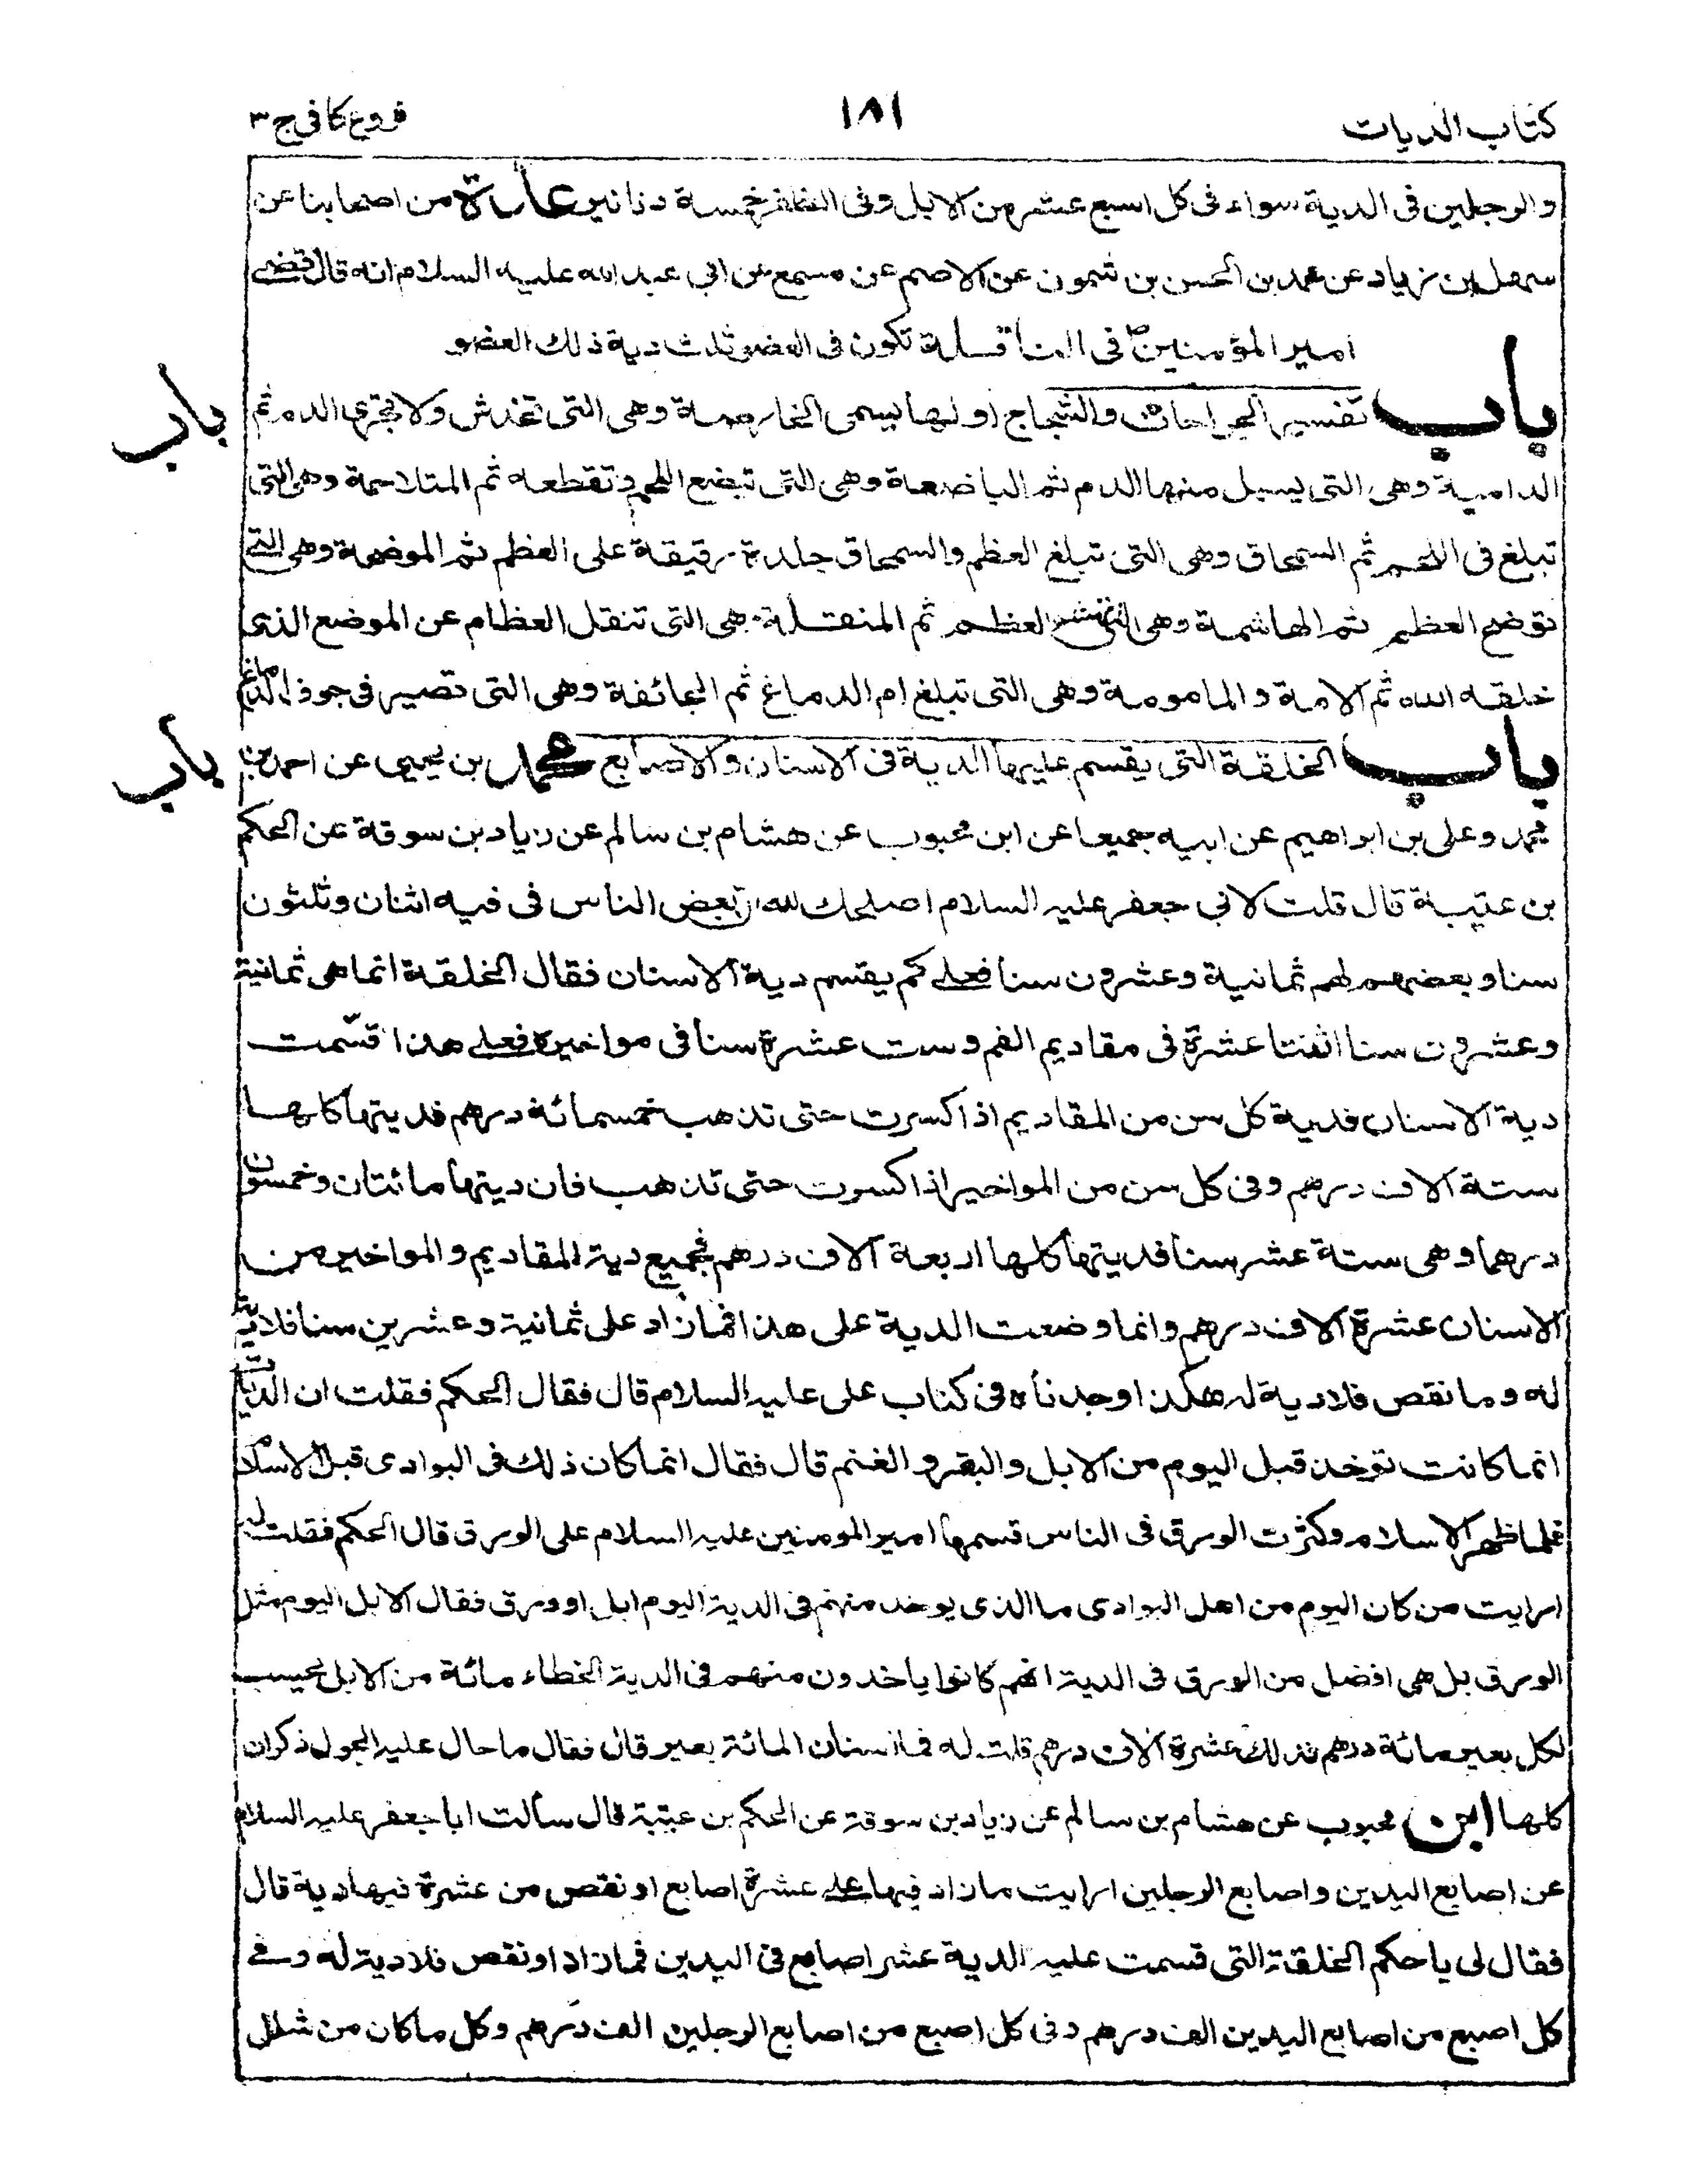 كتاب الديات
١٨١
فروع كافى ج ٣
والرجلين فى الدية سواء فى كل اصبع عشر من الابل وفى الظفر خمسة دنانير عدة من اصحابنا عن
سهل بن زياد عن محمد بن الحسن بن شمون عن الاصم عن مسمع عن ابى عبد الله عليه السلام انه قال قضى
امير المؤمنين ص فى الناقلة تكون فى العضو ثلث دية ذلك العضو
باب تفسير الجراحات والشجاج اولها يسمى الخارصة وهى التى تخدش ولا تجرى الدم ثم
باب
الدامية وهى التى يسيل منها الدم ثم الباضعة وهى التى تبضع اللحم وتقطعه ثم المتلاحمة وهى التى
تبلغ فى اللحم ثم السمحاق وهى التى تبلغ العظم والسمحاق جلدة رقيقة على العظم ثم الموضحة وهى التى
توضح العظم ثم الهاشمة وهى التى تهشم العظم ثم المنقلة وهى التى تنقل العظام عن الموضع الذى
خلقه الله ثم الامة والمامومة وهى التى تبلغ ام الدماغ ثم الجائفة وهى التى تصير فى جوف الدماغ
باب الخلقة التى يقسم عليها الدية فى الاسنان والاصابع محمد بن يحيى عن احمد بن
باب
محمد وعلى بن ابراهيم عن ابيه جميعا عن ابن محبوب عن هشام بن سالم عن زياد بن سوقة عن الحكم
بن عتيبة قال قلت لابى جعفر عليه السلام اصلحك الله ان بعض الناس فى فيه اثنان وثلثون
سنا وبعضهم لهم ثمانية وعشرون سنا فعلى كم يقسم دية الاسنان فقال الخلقة انما هى ثمانية
وعشرون سنا اثنتا عشرة فى مقاديم الفم وست عشرة سنا فى مواخيره فعلى هذا قسّمت
دية الاسنان فدية كل سن من المقاديم اذا كسرت حتى تذهب خمسمائة درهم فديتها كلها
ستة الاف درهم وفى كل سن من المواخير اذا كسرت حتى تذهب فان ديتها مائتان وخمسون
درهما وهى ستة عشر سنا فديتها كلها اربعة الاف درهم فجميع دية المقاديم والمواخير من
الاسنان عشرة الاف درهم وانما وضعت الدية على هذا فما زاد على ثمانية وعشرين سنا فلا دية
له وما نقص فلا دية له هكذا وجدناه فى كتاب على عليه السلام قال فقال الحكم فقلت ان الديات
انما كانت توخذ قبل اليوم من الابل والبقر والغنم قال فقال انما كان ذلك فى البوادى قبل الاسلام
فلما ظهر الاسلام وكثرت الورق فى الناس قسمها امير المومنين عليه السلام على الورق قال الحكم فقلت له
ارايت من كان اليوم من اهل البوادى ما الذى يوخذ منهم فى الدية اليوم ابل او ورق فقال الابل اليوم مثل
الورق بل هى افضل من الورق فى الدية انهم كانوا ياخذون منهم فى الدية الخطاء مائة من الابل يحسب
لكل بعير مائة درهم فذلك عشرة الاف درهم قلت له فما اسنان المائة بعير قال فقال ما حال عليه الحول ذكران
كلها (ابن) محبوب عن هشام بن سالم عن زياد بن سوقة عن الحكم بن عتيبة قال سألت ابا جعفر عليه السلام
عن اصابع اليدين واصابع الرجلين ارايت ما زاد فيها على عشرة اصابع او نقص من عشرة فيها دية قال
فقال لى يا حكم الخلقة التى قسمت عليه الدية عشر اصابع فى اليدين فما زاد او نقص فلا دية له وفى
كل اصبع من اصابع اليدين الف درهم وفى كل اصبع من اصابع الرجلين الف درهم وكل ما كان من شلل